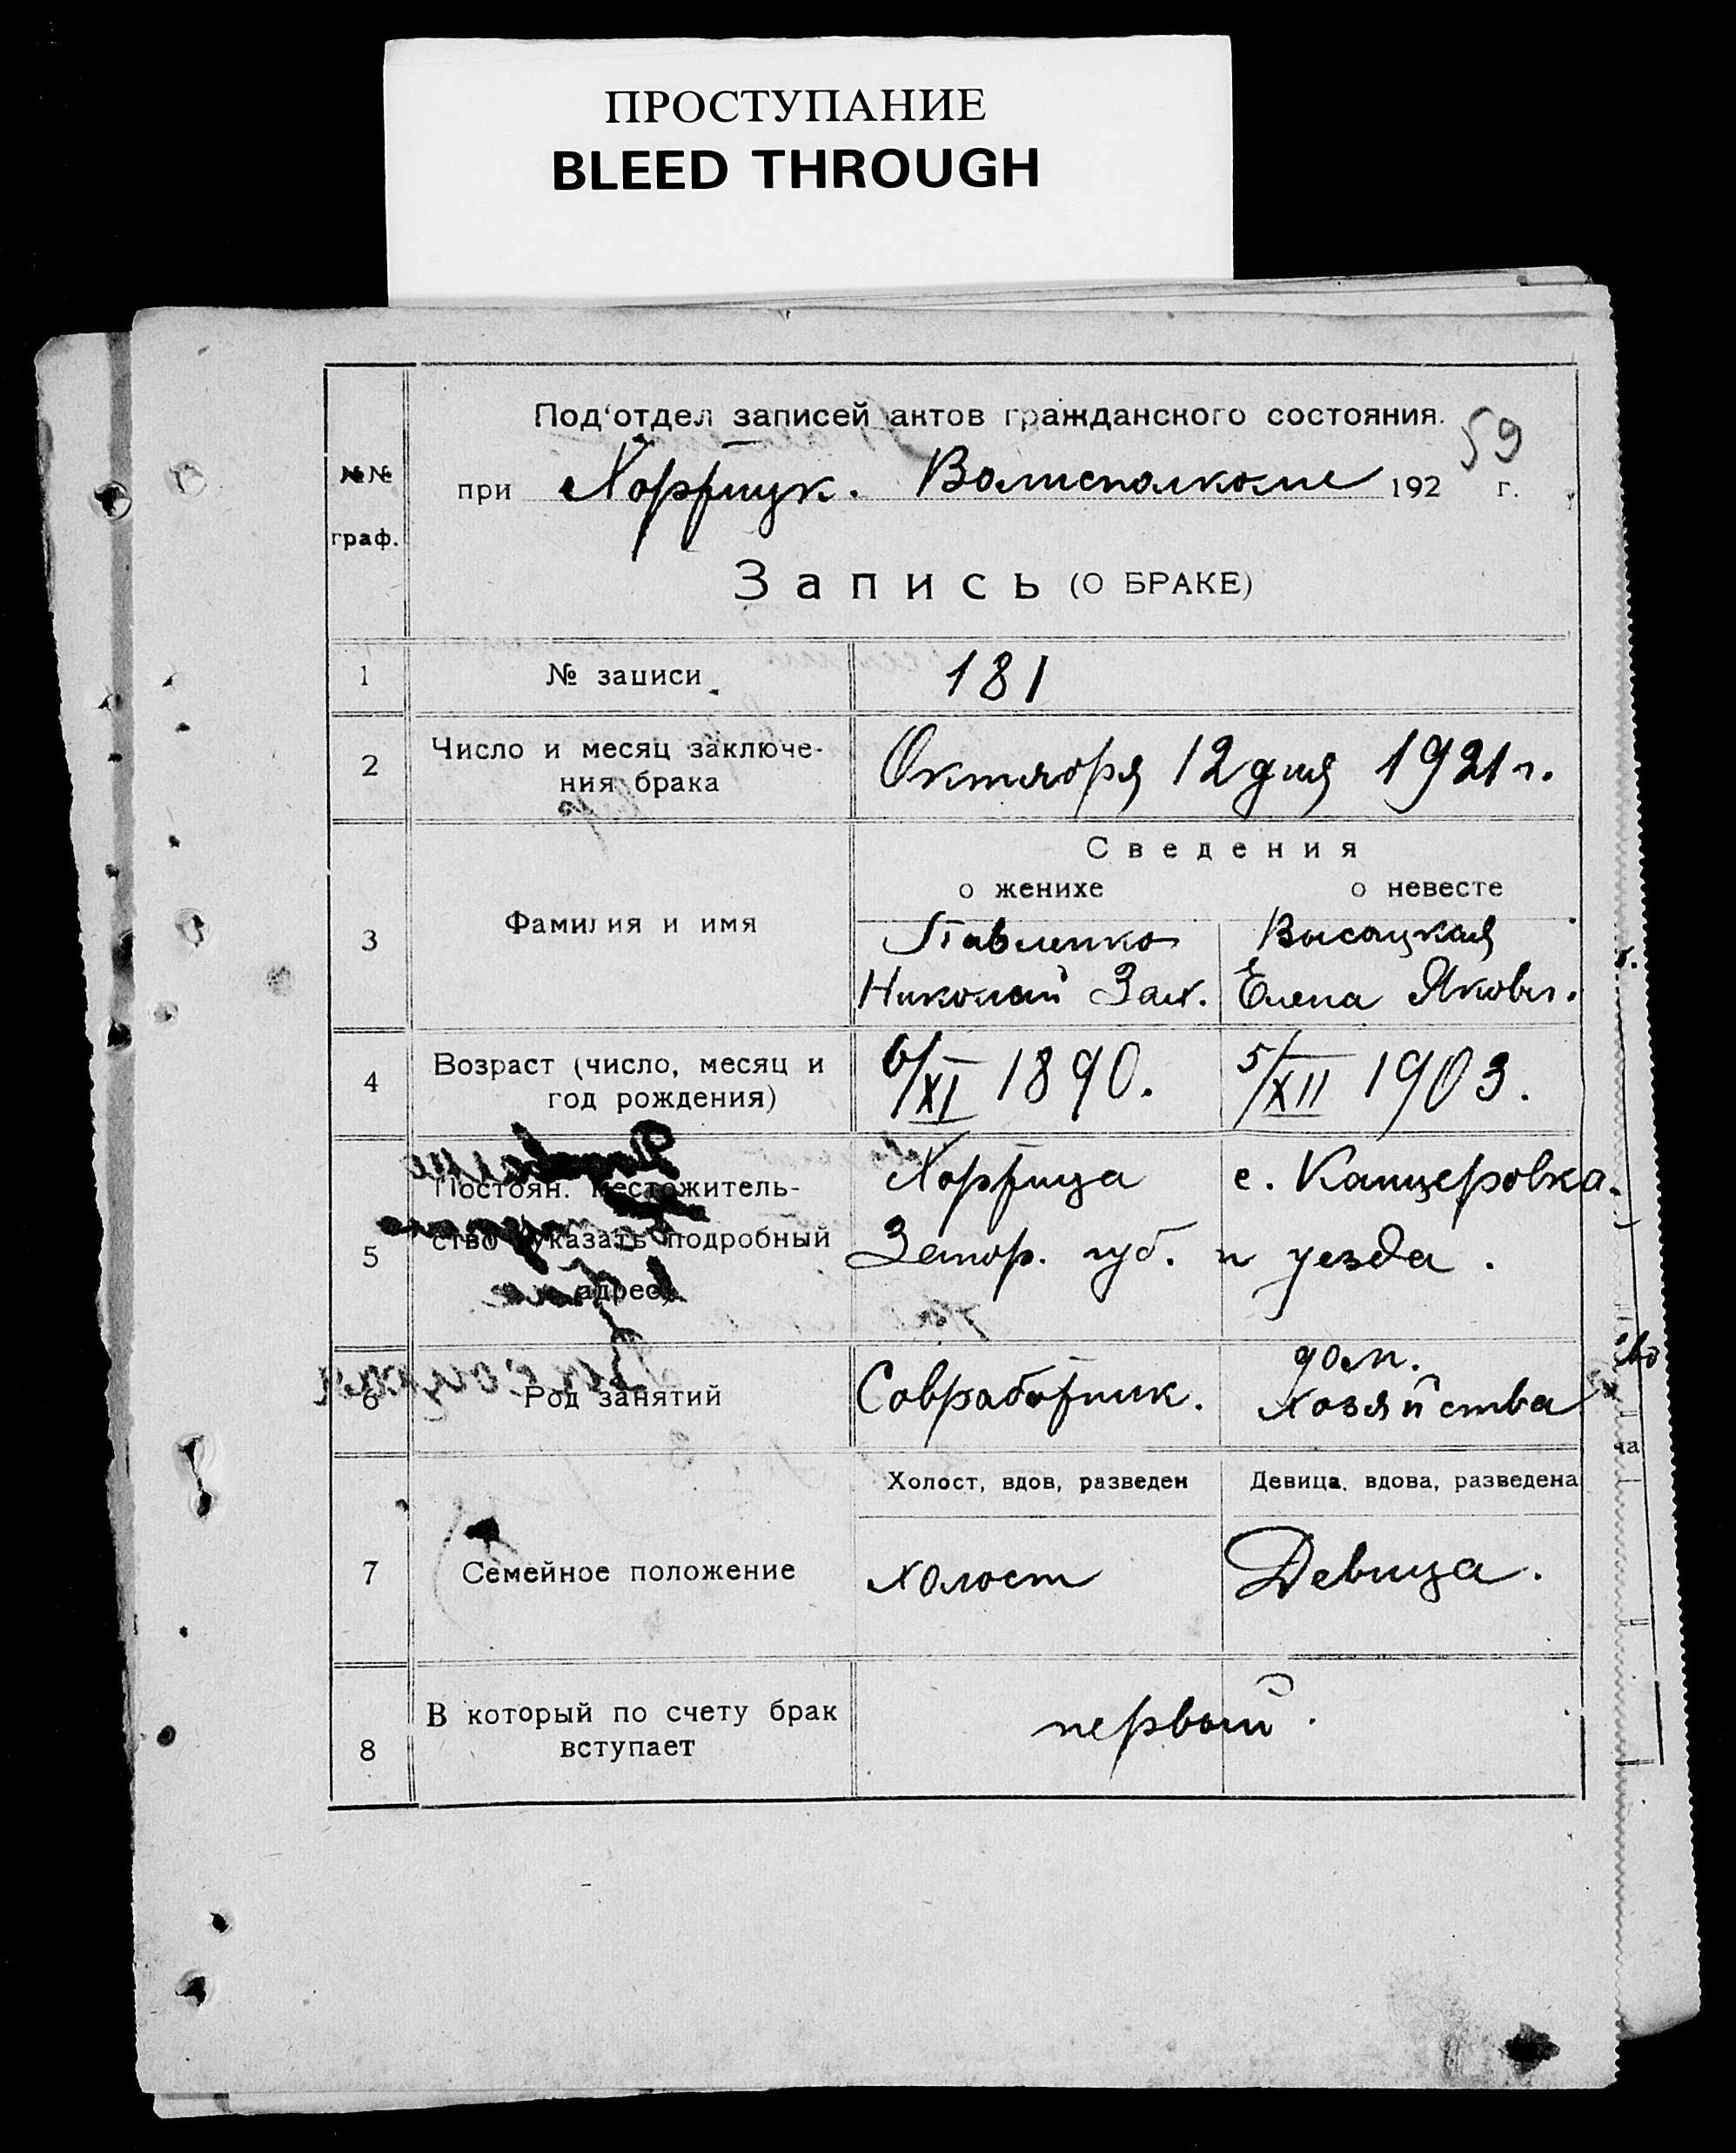 ПРОСТУПАНИЕ
BLEED THROUGH
Под'отдел записей актов гражданского состояния.
59
№№ граф.
при Хортицк. Волисполкоме 192 г.
Запись (О БРАКЕ)
1 № записи 181
2 Число и месяц заключе-
ния брака
Октября 12 дня 1921 г.
Сведения
о женихе о невесте
3 Фамилия и имя
Павленко Высоцкая
Николай Зах. Елена Яковл.
4 Возраст (число, месяц и
год рождения)
6/XI 1890. 5/XII 1903.
5 Постоян. местожитель-
ство (указать подробный
адрес)
Хортица с. Канцеровка.
Запор. губ. и уезда.
6 Род занятий
Совработник. дом.
хозяйства
Холост, вдов, разведен Девица, вдова, разведена
7 Семейное положение
холост Девица.
8 В который по счету брак
вступает
первый.